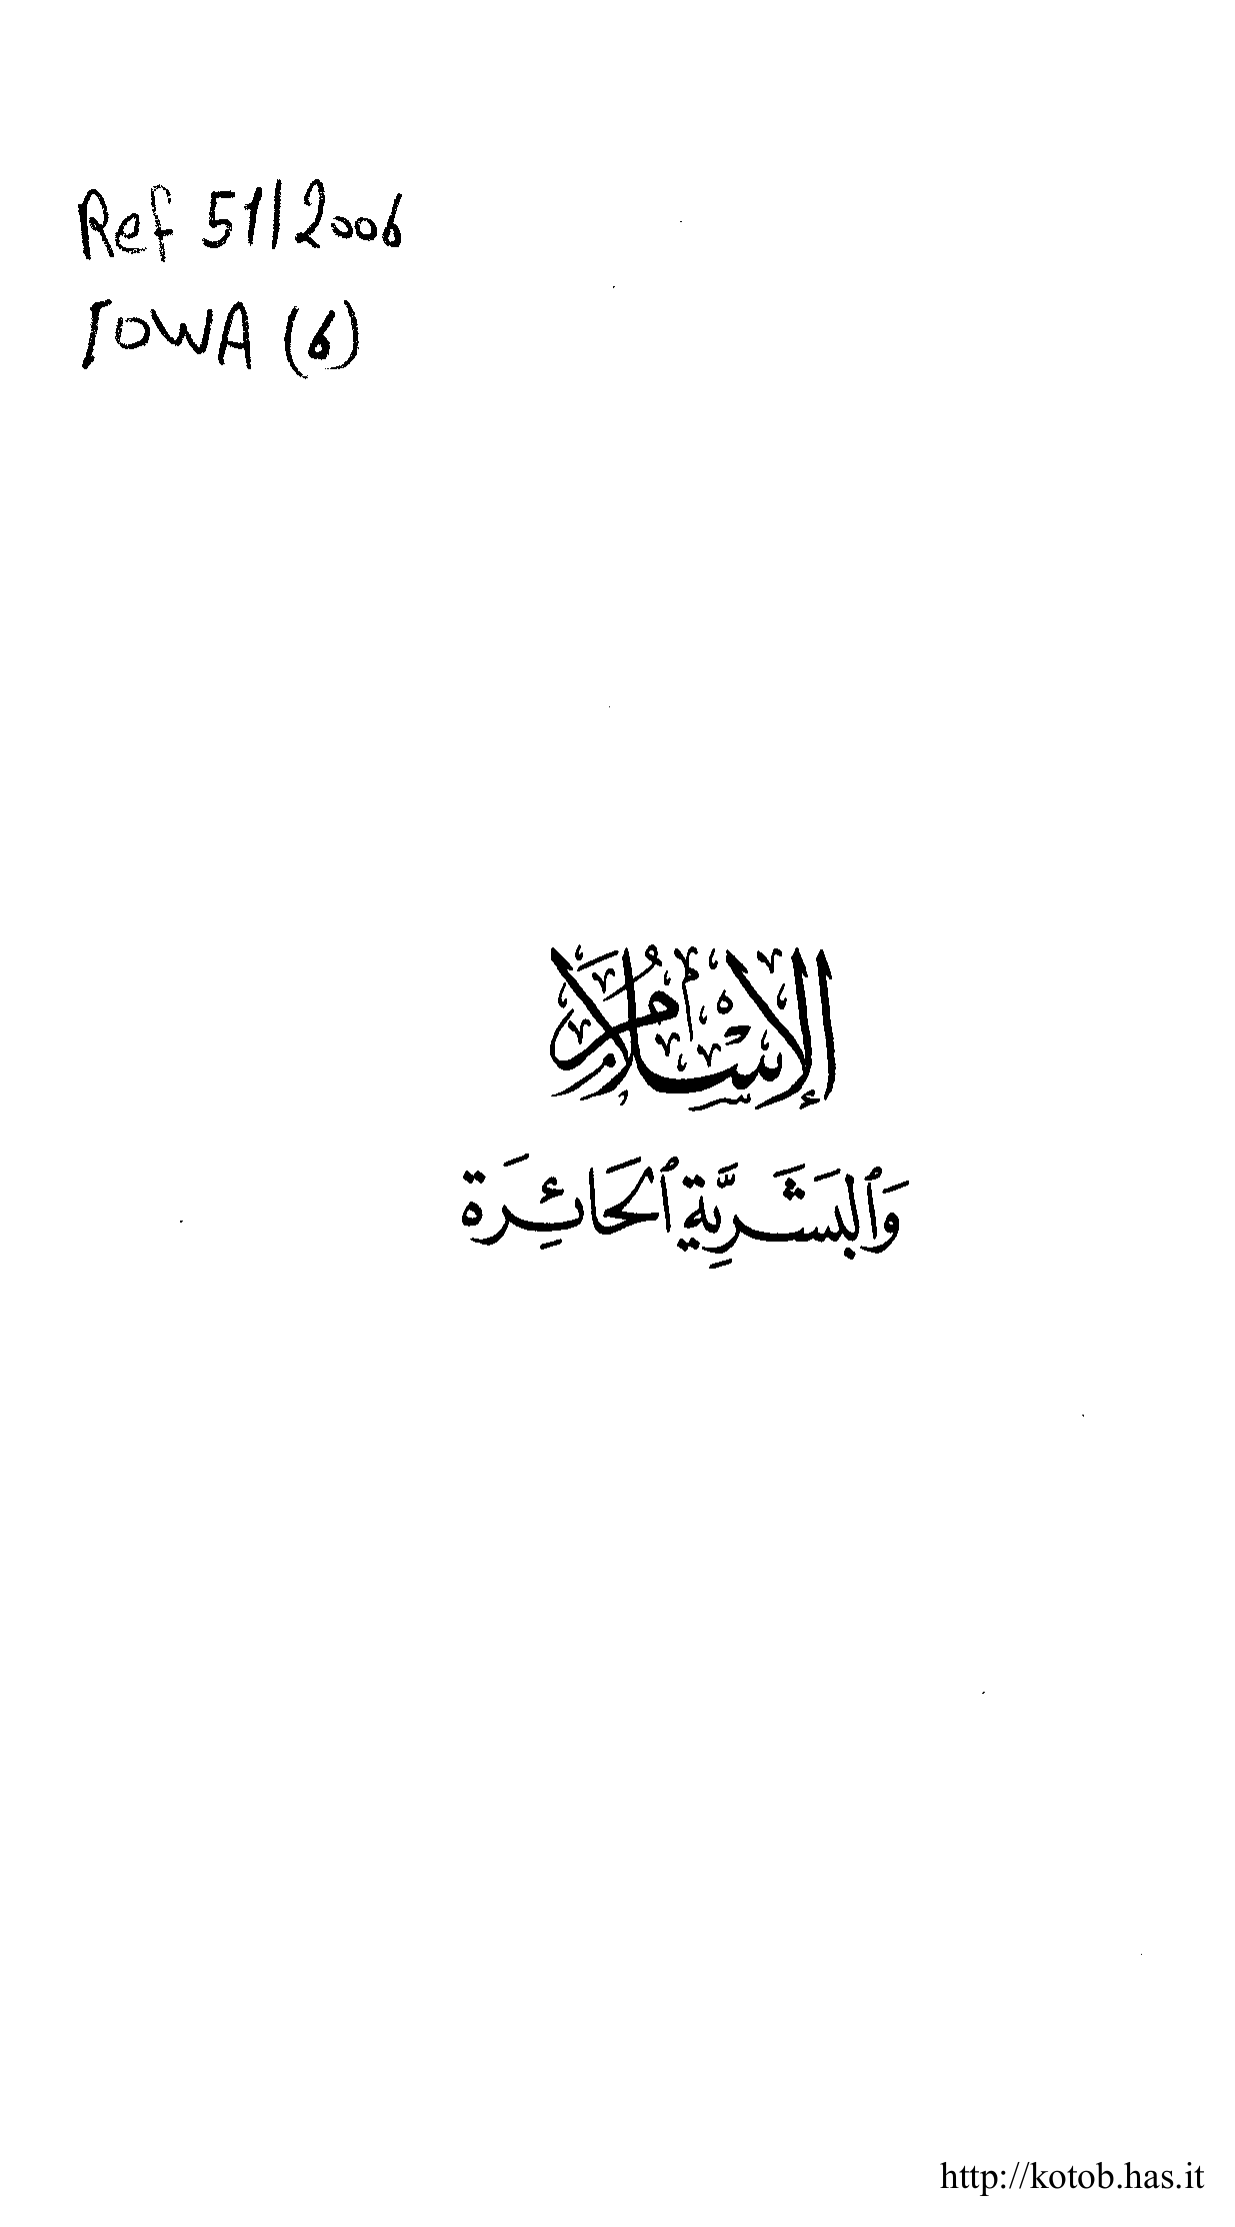 Ref 51/2006
IOWA (6)
الإسلام
وَٱلبَشَرِيَّة ٱلحَائِرَة
http://kotob.has.it